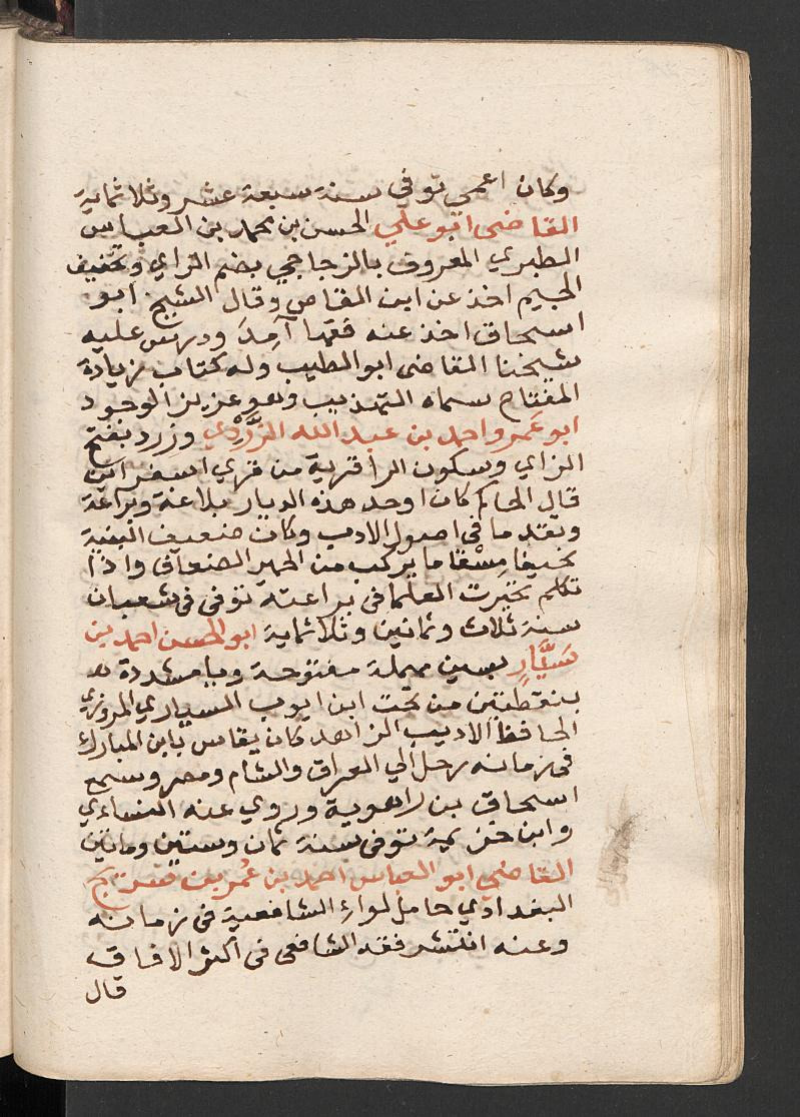 وكان اعمي توفي سنة سبعة عشر وثلاثماية
القاضى ابو علي الحسن بن محمد بن العباس
الطبري المعروف بالزجاجي بضم الزاي وتخفيف
الجيم اخذ عن ابن القاص وقال الشيخ ابو
اسحاق اخذ عنه فقها آمد ودرس عليه
شيخنا القاضى ابو الطيب وله كتاب زيادة
المفتاح سماه التهذيب وهو عزيز الوجود
ابو عَمرو احمد بن عبد الله الزَّرْدِي وزرد بفتح
الزاي وسكون الرا قرية من قري اسفراين
قال الحاكم كان اوحد هذه الديار بلاغة وبراعة
وتقدما في اصول الادب وكان ضعيف البنية
نحيفا مسقاما يركب من الحمير الضعاف واذا
تكلم تحيرت العلما في براعته توفى فى شعبان
سنة ثلاث وثمانين وثلاثماية ابو الحسن احمد بن
سَيَّارٍ بسين مهملة مفتوحة ويا مشددة
بنقطتين من تحت ابن ايوب السياري المروزي
الحافظ الاديب الزاهد كان يقاس بابن المبارك
فى زمانه رحل الي العراق والشام ومصر وسمع
اسحاق بن راهوية وروي عنه النساءي
وابن خزيمة توفى سنة ثمان وستين وماتين
القاضي ابو العباس احمد بن عُمر بن سريج
البغدادي حامل لواء الشافعية فى زمانه
وعنه انتشر فقه الشافعى فى اكثر الافاق
قال